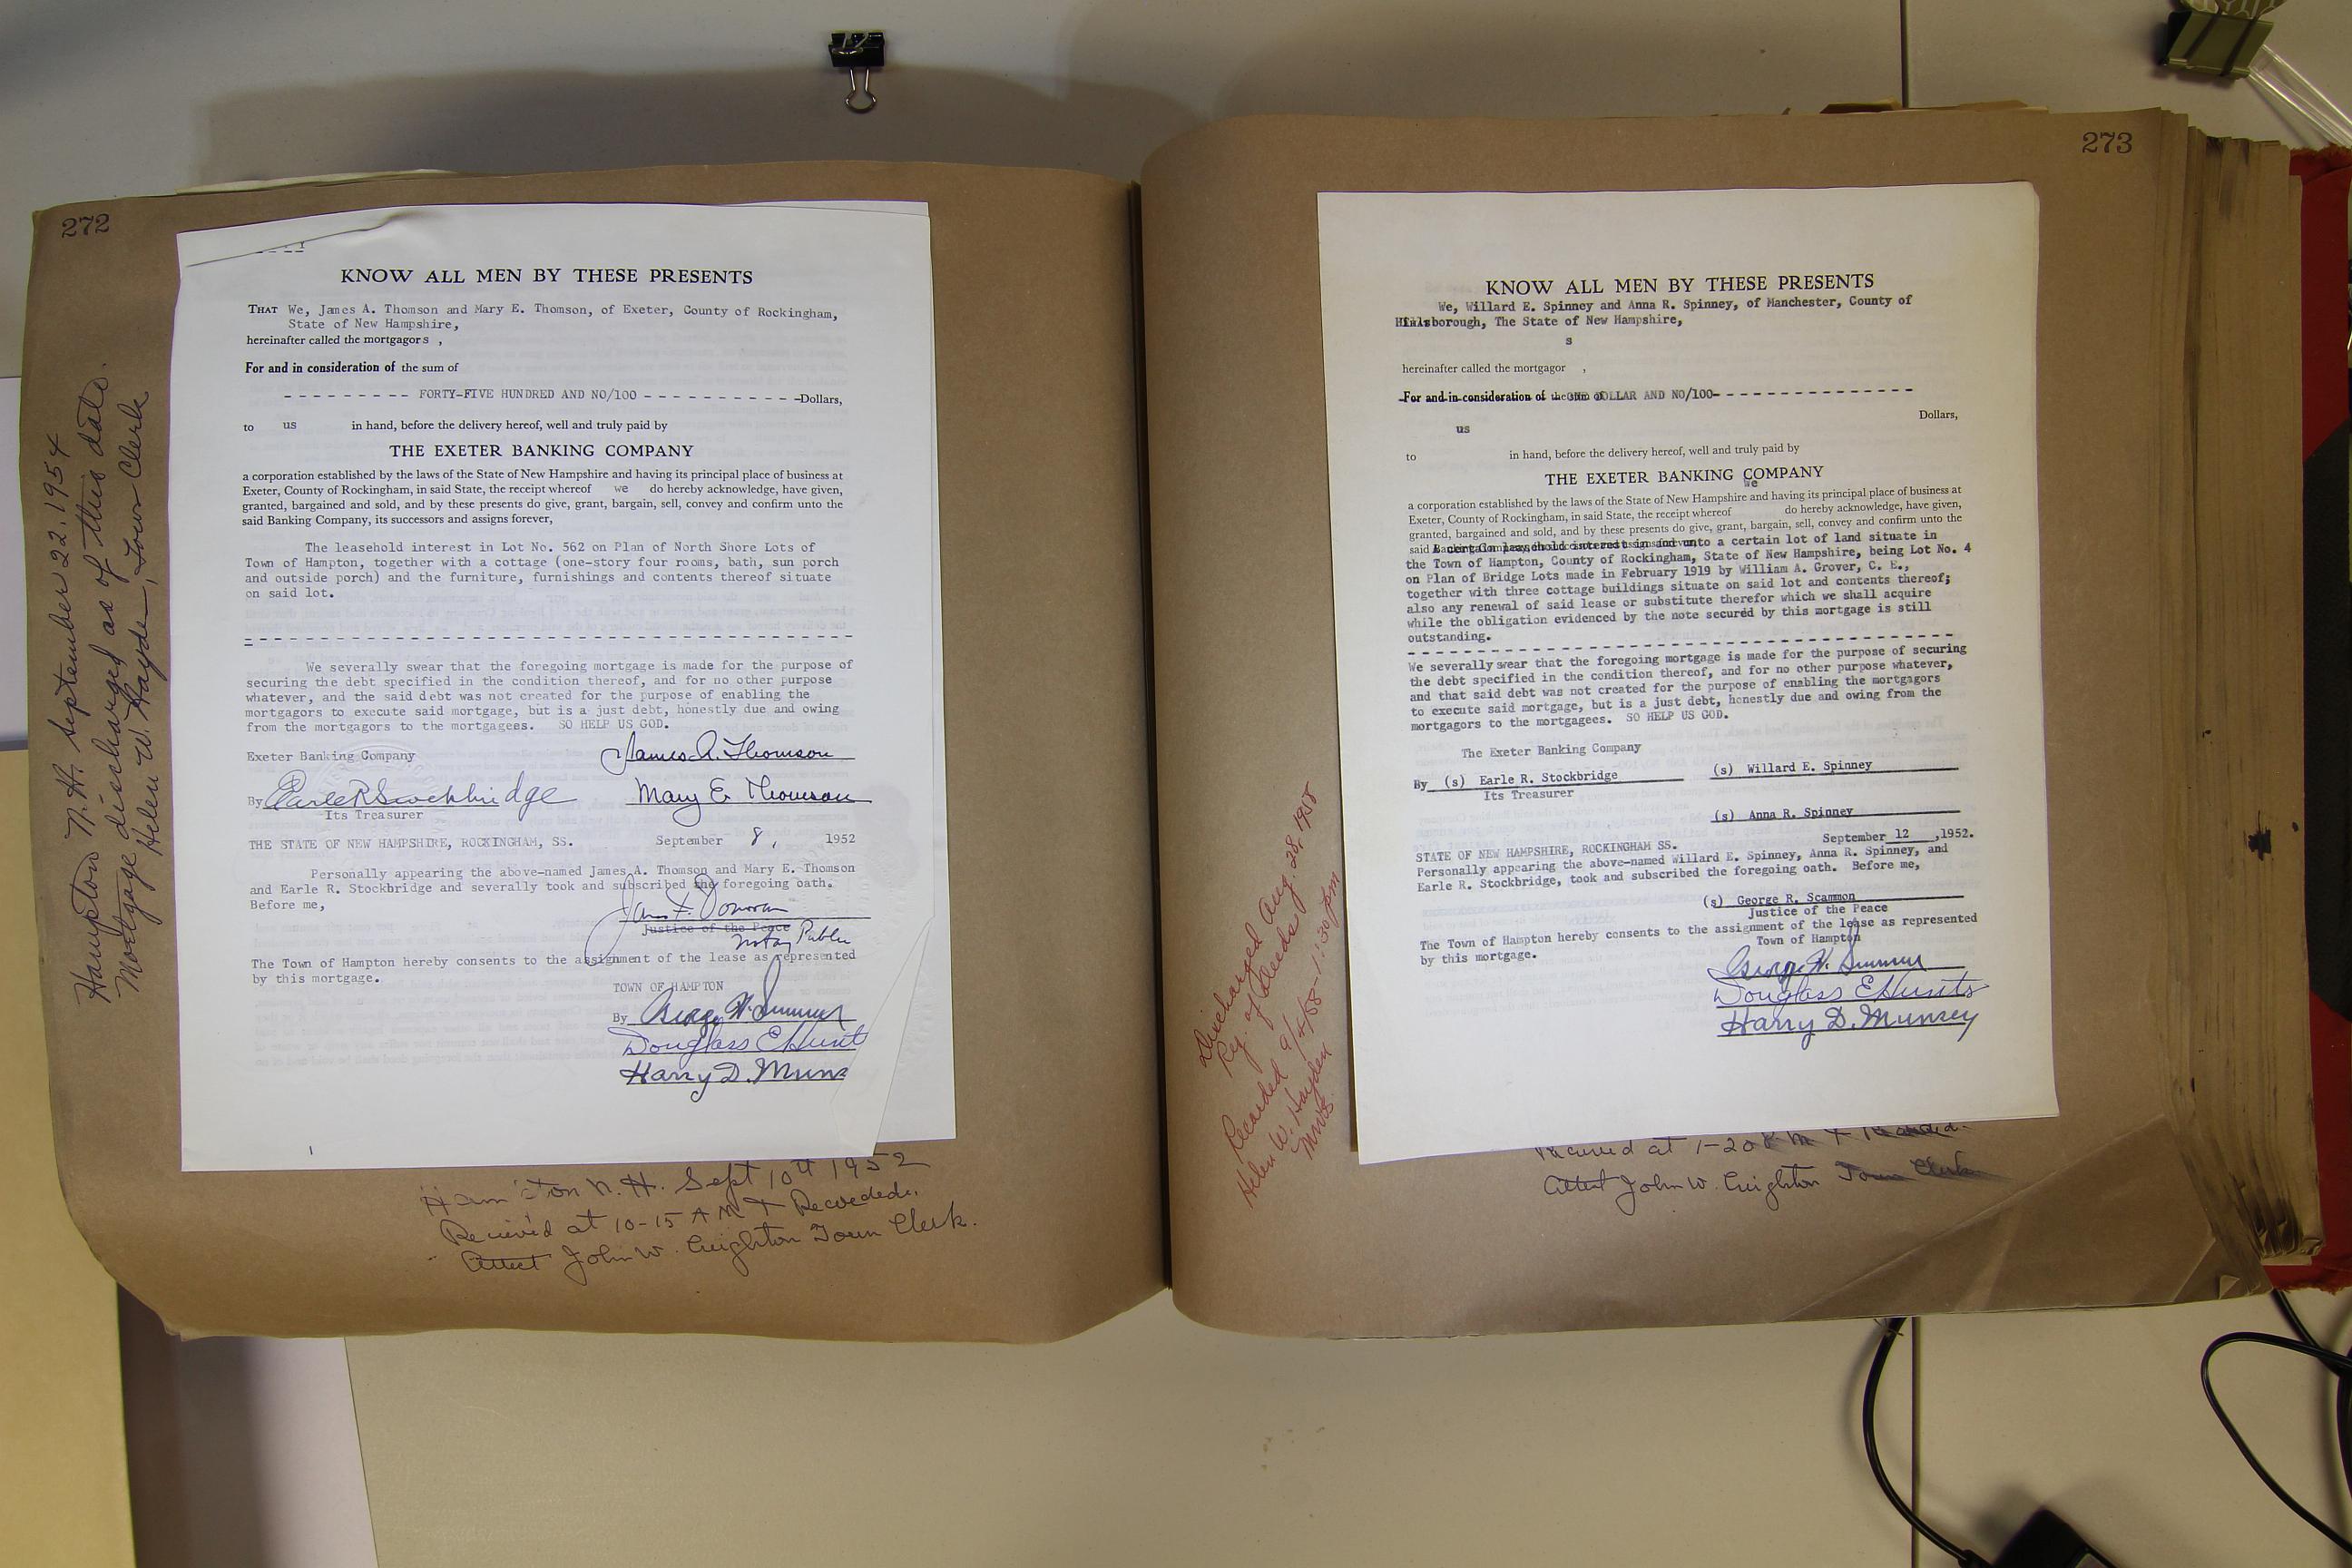 272
KNOW ALL MEN BY THESE PRESENTS
THAT We, James A. Thomson and Mary E. Thomson, of Exeter, County of Rockingham,
State of New Hampshire,
hereinafter called the mortgagors ,
For and in consideration of the sum of
- - - - - - - - - FORTY-FIVE HUNDRED AND NO/100 - - - - - - - - - - - -Dollars,
to us in hand, before the delivery hereof, well and truly paid by
THE EXETER BANKING COMPANY
a corporation established by the laws of the State of New Hampshire and having its principal place of business at
Exeter, County of Rockingham, in said State, the receipt whereof we do hereby acknowledge, have given,
granted, bargained and sold, and by these presents do give, grant, bargain, sell, convey and confirm unto the
said Banking Company, its successors and assigns forever,
The leasehold interest in Lot No. 562 on Plan of North Shore Lots of
Town of Hampton, together with a cottage (one-story four rooms, bath, sun porch
and outside porch) and the furniture, furnishings and contents thereof situate
on said lot.
We severally swear that the foregoing mortgage is made for the purpose of
securing the debt specified in the condition thereof, and for no other purpose
whatever, and the said debt was not created for the purpose of enabling the
mortgagors to execute said mortgage, but is a just debt, honestly due and owing
from the mortgagors to the mortgagees. SO HELP US GOD.
Exeter Banking Company James A. Thomson
By Earle R Stockbridge Mary E. Thomson
Its Treasurer
THE STATE OF NEW HAMPSHIRE, ROCKINGHAM, SS. September 8, 1952
Personally appearing the above-named James A. Thomson and Mary E. Thomson
and Earle R. Stockbridge and severally took and subscribed the foregoing oath.
Before me,
Justice of the Peace
Notary Public
The Town of Hampton hereby consents to the assignment of the lease as represented
by this mortgage.
TOWN OF HAMPTON
By George W. Sumner
Douglass E Hunt
Harry D. Muns
Hampton N. H. Sept 10th 1952
Recieved at 10-15 AM & Recorded.
Attest John W. Creighton Town Clerk.
Hampton N. H. September 22, 1954
Mortgage discharged as of this date.
Helen W. Hayden, Town Clerk
273
KNOW ALL MEN BY THESE PRESENTS
We, Willard E. Spinney and Anna R. Spinney, of Manchester, County of
Hillsborough, The State of New Hampshire,
s
hereinafter called the mortgagor ,
For and in consideration of the sum of ONE DOLLAR AND NO/100- - - - - - - - - - - - - - -
Dollars,
us
to in hand, before the delivery hereof, well and truly paid by
THE EXETER BANKING COMPANY
we
a corporation established by the laws of the State of New Hampshire and having its principal place of business at
Exeter, County of Rockingham, in said State, the receipt whereof do hereby acknowledge, have given,
granted, bargained and sold, and by these presents do give, grant, bargain, sell, convey and confirm unto the
said A certain leasehold interest in and unto a certain lot of land situate in
the Town of Hampton, County of Rockingham, State of New Hampshire, being Lot No. 4
on Plan of Bridge Lots made in February 1919 by William A. Grover, C. E.,
together with three cottage buildings situate on said lot and contents thereof;
also any renewal of said lease or substitute therefor which we shall acquire
while the obligation evidenced by the note secured by this mortgage is still
outstanding.
We severally swear that the foregoing mortgage is made for the purpose of securing
the debt specified in the condition thereof, and for no other purpose whatever,
and that said debt was not created for the purpose of enabling the mortgagors
to execute said mortgage, but is a just debt, honestly due and owing from the
mortgagors to the mortgagees. SO HELP US GOD.
The Exeter Banking Company
By (s) Earle R. Stockbridge (s) Willard E. Spinney
Its Treasurer
(s) Anna R. Spinney
September 12 ,1952.
STATE OF NEW HAMPSHIRE, ROCKINGHAM SS.
Personally appearing the above-named Willard E. Spinney, Anna R. Spinney, and
Earle R. Stockbridge, took and subscribed the foregoing oath. Before me,
(s) George R. Scammon
Justice of the Peace
The Town of Hampton hereby consents to the assignment of the lease as represented
by this mortgage. Town of Hampton
George W. Sumner
Douglass E Hunt
Harry D. Munsey
Recieved at 1-20 P M & Recorded.
Attest John W. Creighton Town Clerk
Discharged Aug. 28, 1958
Reg. of Deeds
Recorded 9/4/58-1:30 pm
Helen W. Hayden